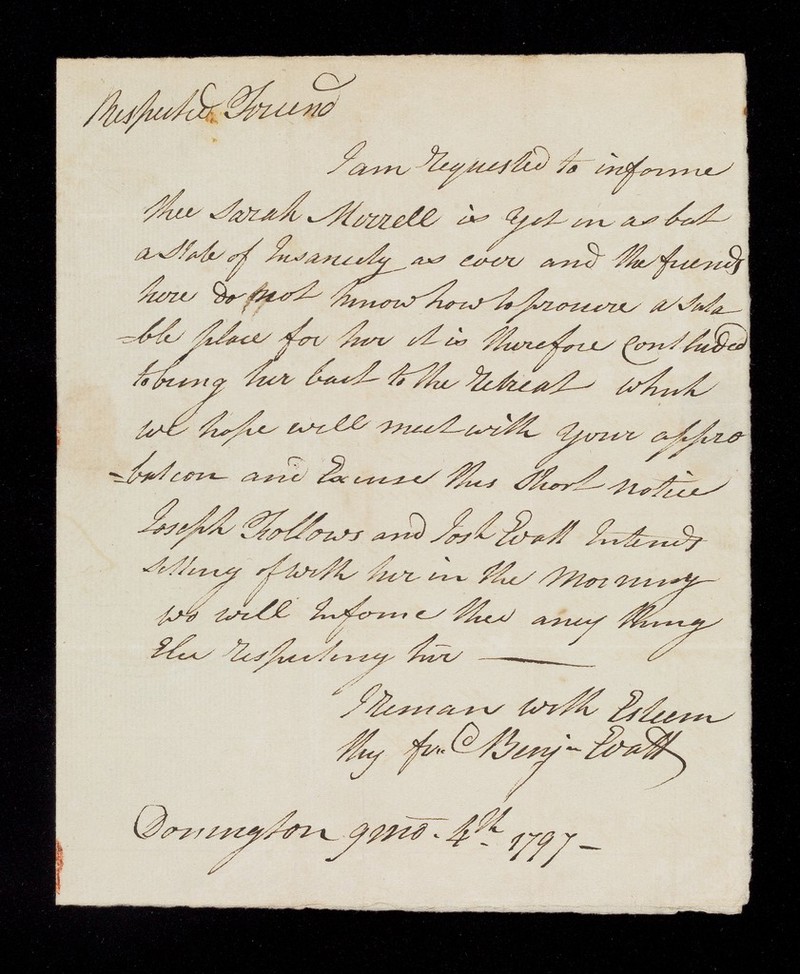 Respected Friend
I am requested to informe
thee Sarah Morrell is yet in as bat
a State of Insanedy as ever and the friends
here do not know how to procure a Suta
=ble place for her it is therefore Concluded
to bring her back to the Retreat which
we hope will meet with your appro
=bation and Excuse this Short notice
Joseph Follows and Josh Evatt Intends
Setting of with her in the Morning
who will Infome thee aney thing
Else respecting her
I reman with Esteem
thy frd Benjn Evatt
Donnington 9 mo. 4th 1797